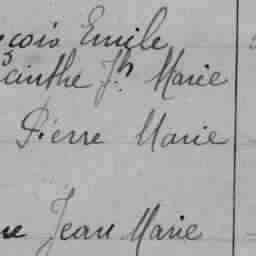 çois Emile
cinthe Jh Marie
Pierre Marie
ne Jean Marie